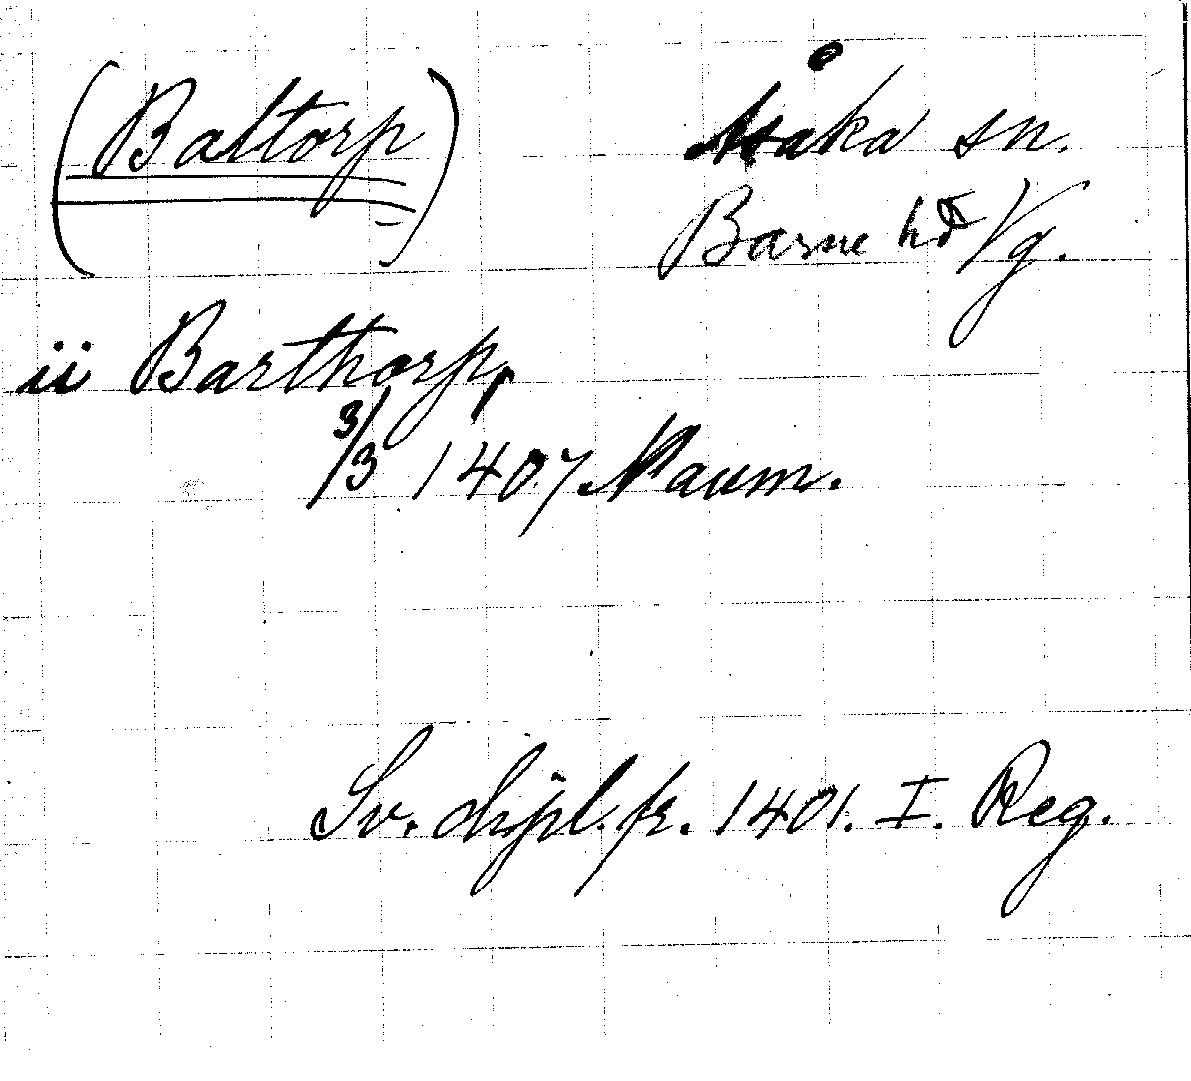 (Baltorp)
Åsaka sn.
Barne hd Vg.
ii Barthorp,
3/3 1407 Naum.
Sv. dipl. fr. 1401. I. Reg.